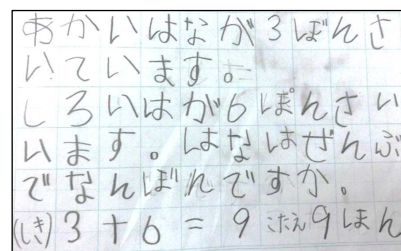 あかいはなが3ぼんさ
いています。
しろいはが6ぽんさい
います。はなはぜんぶ
でなんぼんですか。
(しき) 3+6=9 こたえ 9ほん